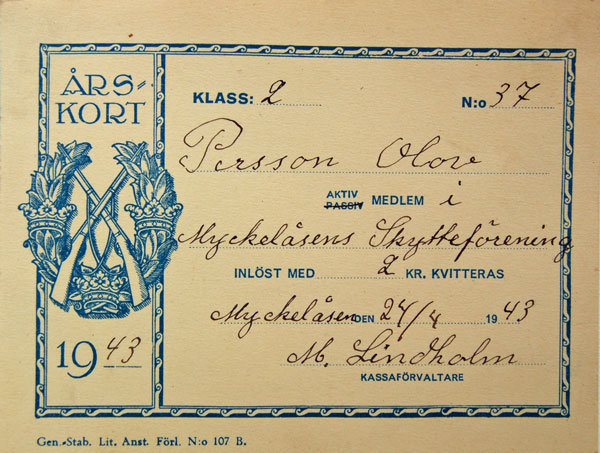 ÅRS-
KORT
1943
KLASS: 2 N:o 37
Persson Olov
AKTIV
PASSIV MEDLEM i
Myckelåsens Skytteförening
INLÖST MED 2 KR. KVITTERAS
Myckelåsen DEN 24/4 1943
M. Lindholm
KASSAFÖRVALTARE
Gen.-Stab. Lit. Anst. Förl. N:o 107 B.